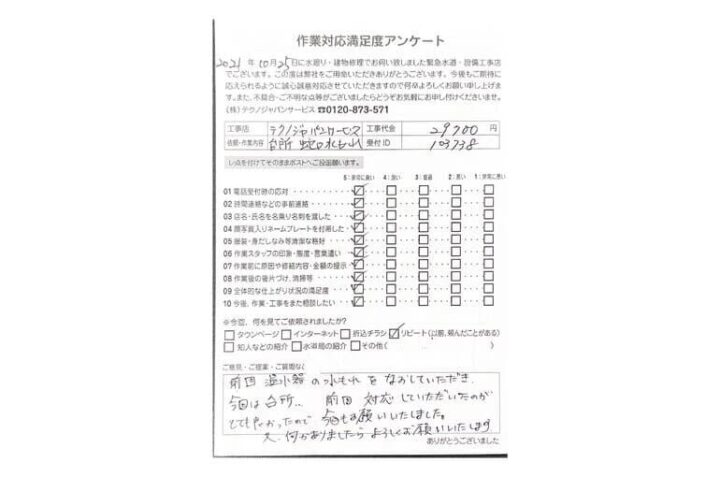 作業対応満足度アンケート
2021年10月25日に水廻り・建物修理でお伺い致しました緊急水道・設備工事店
でございます。この度は弊社をご用命いただきありがとうございます。今後もご期待に
応えられるように誠心誠意対応させていただきますので何卒よろしくお願い申し上げま
す。また、不具合・ご不明な点等がございましたらどうぞお気軽にお申し付けくださいませ。
(株)テクノジャパンサービス ☎0120-873-571
工事店 テクノジャパンサービス 工事代金 29700 円
依頼・作業内容 台所 蛇口水もれ 受付ID 103738
レ点を付けてそのままポストへご投函願います。
5:非常に良い 4:良い 3:普通 2:悪い 1:非常に悪い
01 電話受付時の応対
02 時間連絡などの事前連絡
03 店名・氏名を名乗り名刺を渡した
04 顔写真入りネームプレートを付用した
05 服装・身だしなみ等清潔な格好
06 作業スタッフの印象・態度・言葉遣い
07 作業前に原因や修繕内容・金額の提示
08 作業後の後片づけ、清掃等
09 全体的な仕上がり状況の満足度
10 今後、作業・工事をまた相談したい
※今回、何を見てご依頼されましたか?
□タウンページ □インターネット □折込チラシ ☑リピート(以前、頼んだことがある)
□知人などの紹介 □水道局の紹介 □その他( )
ご意見・ご提案・ご質問など
前回 温水器の水もれをなおしていただき、
今回は台所.. 前回 対応していただいたのが
とても良かったので 今回もお願いいたしました。
又、何かありましたらよろしくお願いいたします
ありがとうございました